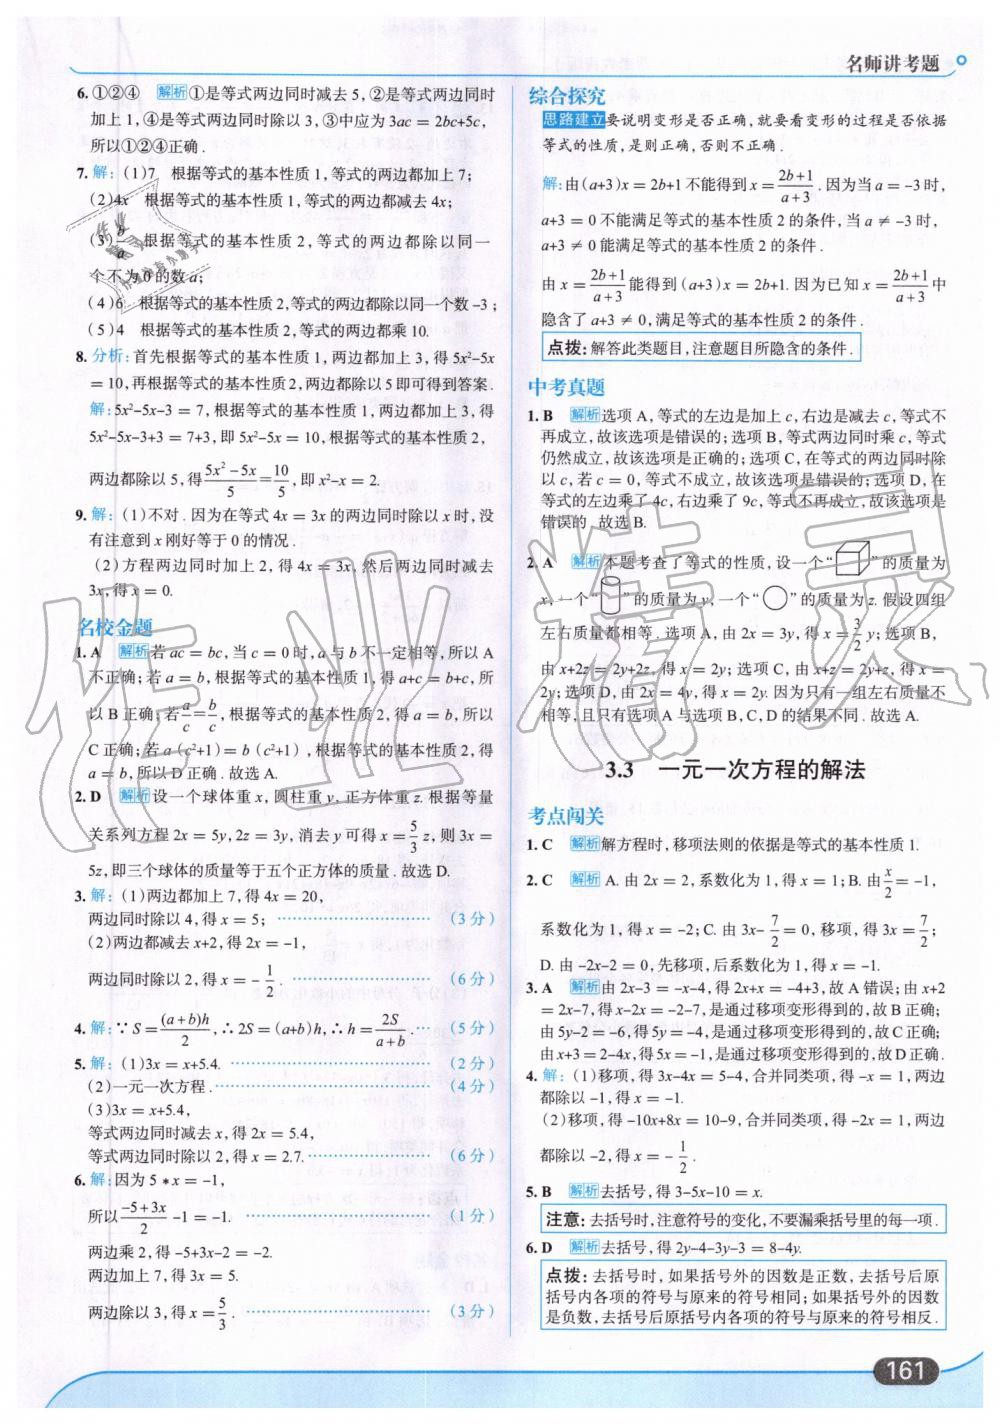 名师讲考题
6. ①②④ 解析 ①是等式两边同时减去 5，②是等式两边同时
加上 1，④是等式两边同时除以 3，③中应为 3ac = 2bc+5c，
所以①②④正确．
7. 解：(1)7 根据等式的基本性质 1，等式的两边都加上 7；
(2)4x 根据等式的基本性质 1，等式的两边都减去 4x；
(3)b/a 根据等式的基本性质 2，等式的两边都除以同一
个不为 0 的数 a；
(4)6 根据等式的基本性质 2，等式的两边都除以同一个数 -3；
(5)4 根据等式的基本性质 2，等式的两边都乘 10.
8. 分析：首先根据等式的基本性质 1，两边都加上 3，得 5x²-5x
= 10，再根据等式的基本性质 2，两边都除以 5 即可得到答案．
解：5x²-5x-3 = 7，根据等式的基本性质 1，两边都加上 3，得
5x²-5x-3+3 = 7+3，即 5x²-5x = 10，根据等式的基本性质 2，
两边都除以 5，得 (5x²-5x)/5 = 10/5，即 x²-x = 2.
9. 解：(1)不对．因为在等式 4x = 3x 的两边同时除以 x 时，没
有注意到 x 刚好等于 0 的情况．
(2)方程两边同时加上 2，得 4x = 3x，然后两边同时减去
3x，得 x = 0.
名校金题
1. A 解析 若 ac = bc，当 c = 0 时，a 与 b 不一定相等，所以 A
不正确；若 a = b，根据等式的基本性质 1，得 a+c = b+c，所
以 B 正确；若 a/c = b/c，根据等式的基本性质 2，得 a = b，所以
C 正确；若 a（c²+1）= b（c²+1），根据等式的基本性质 2，得
a = b，所以 D 正确．故选 A.
2. D 解析 设一个球体重 x，圆柱重 y，正方体重 z. 根据等量
关系列方程 2x = 5y，2z = 3y，消去 y 可得 x = 5/3 z，则 3x =
5z，即三个球体的质量等于五个正方体的质量．故选 D.
3. 解：(1)两边都加上 7，得 4x = 20，
两边同时除以 4，得 x = 5；……（3 分）
(2)两边都减去 x+2，得 2x = -1，
两边同时除以 2，得 x = -1/2 . ……（6 分）
4. 解：∵ S = (a+b)h/2，∴ 2S = (a+b)h，∴ h = 2S/(a+b) . …（5 分）
5. 解：(1)3x = x+5.4. ……（2 分）
(2)一元一次方程．……（4 分）
(3)3x = x+5.4，
等式两边同时减去 x，得 2x = 5.4，
等式两边同时除以 2，得 x = 2.7. ……（6 分）
6. 解：因为 5 * x = -1，
所以 (-5+3x)/2 -1 = -1. ……（1 分）
两边乘 2，得 -5+3x-2 = -2.
两边加上 7，得 3x = 5.
两边除以 3，得 x = 5/3 . ……（3 分）
综合探究
思路建立 要说明变形是否正确，就要看变形的过程是否依据
等式的性质，是则正确，否则不正确．
解：由 (a+3)x = 2b+1 不能得到 x = (2b+1)/(a+3) . 因为当 a = -3 时，
a+3 = 0 不能满足等式的基本性质 2 的条件，当 a ≠ -3 时，
a+3 ≠ 0 能满足等式的基本性质 2 的条件．
由 x = (2b+1)/(a+3) 能得到 (a+3)x = 2b+1. 因为已知 x = (2b+1)/(a+3) 中
隐含了 a+3 ≠ 0，满足等式的基本性质 2 的条件．
点拨：解答此类题目，注意题目所隐含的条件．
中考真题
1. B 解析 选项 A，等式的左边是加上 c，右边是减去 c，等式不
再成立，故该选项是错误的；选项 B，等式两边同时乘 c，等式
仍然成立，故该选项是正确的；选项 C，在等式的两边同时除
以 c，若 c = 0，等式不成立，故该选项是错误的；选项 D，在
等式的左边乘了 4c，右边乘了 9c，等式不再成立，故该选项是
错误的．故选 B.
2. A 解析 本题考查了等式的性质，设一个“ ”的质量为
x，一个“ ”的质量为 y，一个“ ”的质量为 z. 假设四组
左右质量都相等．选项 A，由 2x = 3y，得 x = 3/2 y；选项 B，
由 x+2z = 2y+2z，得 x = 2y；选项 C，由 x+z = 2y+z，得 x =
2y；选项 D，由 2x = 4y，得 x = 2y. 因为只有一组左右质量不
相等，且只有选项 A 与选项 B，C，D 的结果不同．故选 A.
3.3 一元一次方程的解法
考点闯关
1. C 解析 解方程时，移项法则的依据是等式的基本性质 1.
2. C 解析 A. 由 2x = 2，系数化为 1，得 x = 1；B. 由 x/2 = -1，
系数化为 1，得 x = -2；C. 由 3x - 7/2 = 0，移项，得 3x = 7/2；
D. 由 -2x-2 = 0，先移项，后系数化为 1，得 x = -1.
3. A 解析 由 2x-3 = -x-4，得 2x+x = -4+3，故 A 错误；由 x+2
= 2x-7，得 x-2x = -2-7，是通过移项变形得到的，故 B 正确；
由 5y-2 = -6，得 5y = -4，是通过移项变形得到的，故 C 正确；
由 x+3 = 2-4x，得 5x = -1，是通过移项变形得到的，故 D 正确．
4. 解：(1)移项，得 3x-4x = 5-4，合并同类项，得 -x = 1，两边
都除以 -1，得 x = -1.
(2)移项，得 -10x+8x = 10-9，合并同类项，得 -2x = 1，两边
都除以 -2，得 x = -1/2 .
5. B 解析 去括号，得 3-5x-10 = x.
注意：去括号时，注意符号的变化，不要漏乘括号里的每一项．
6. D 解析 去括号，得 2y-4-3y-3 = 8-4y.
点拨：去括号时，如果括号外的因数是正数，去括号后原
括号内各项的符号与原来的符号相同；如果括号外的因数
是负数，去括号后原括号内各项的符号与原来的符号相反．
161
作业精灵